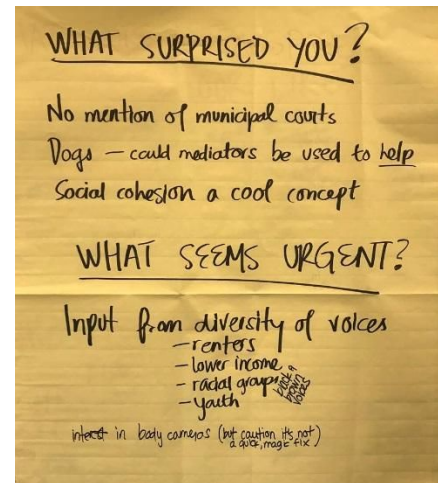 WHAT SURPRISED YOU?
No mention of municipal courts
Dogs – could mediators be used to help
Social cohesion a cool concept
WHAT SEEMS URGENT?
Input from diversity of voices
– renters
– lower income
– racial groups black & brown voices
– youth
interest in body cameras (but caution it's not a quick, magic fix)